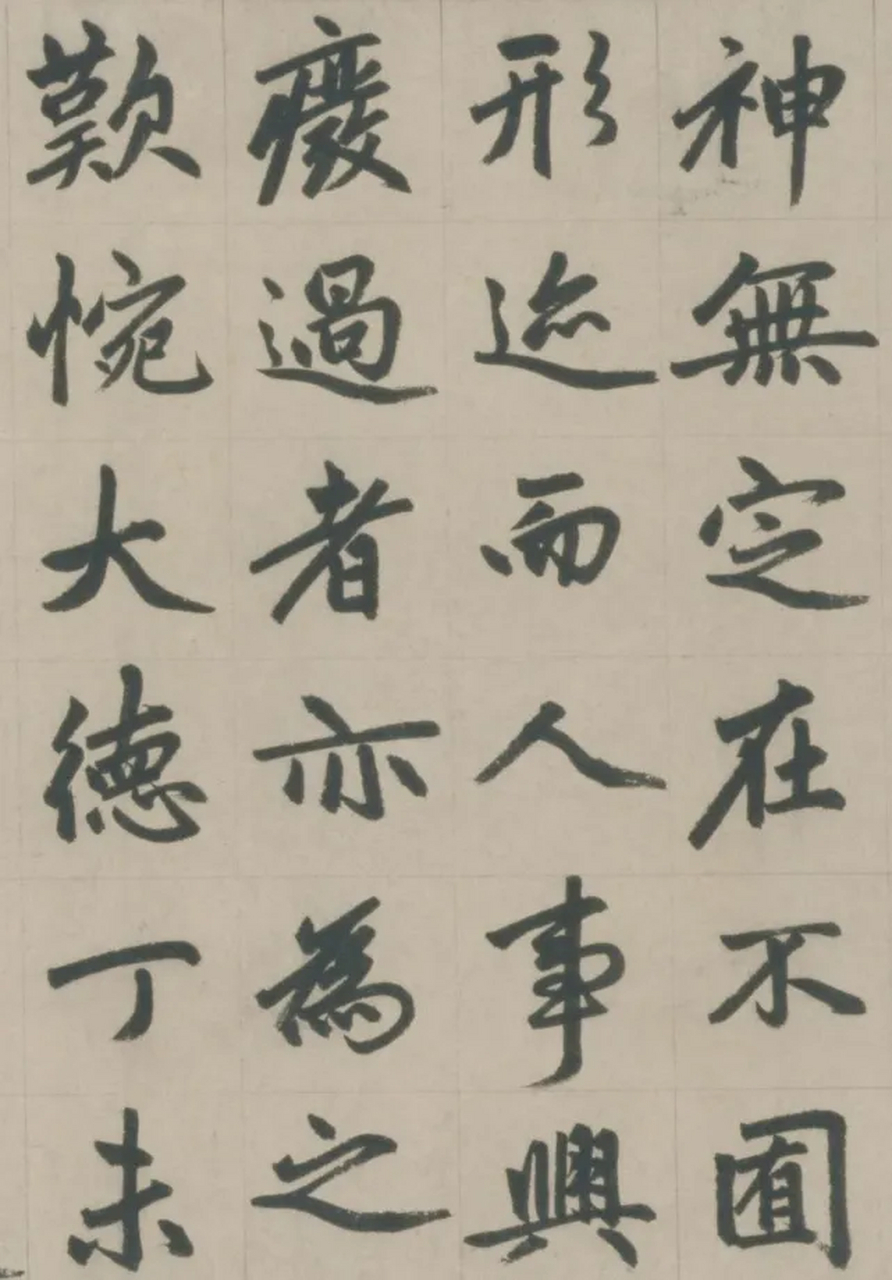 神無定在不囿
形迹而人事興
廢過者亦為之
歎惋大德丁未